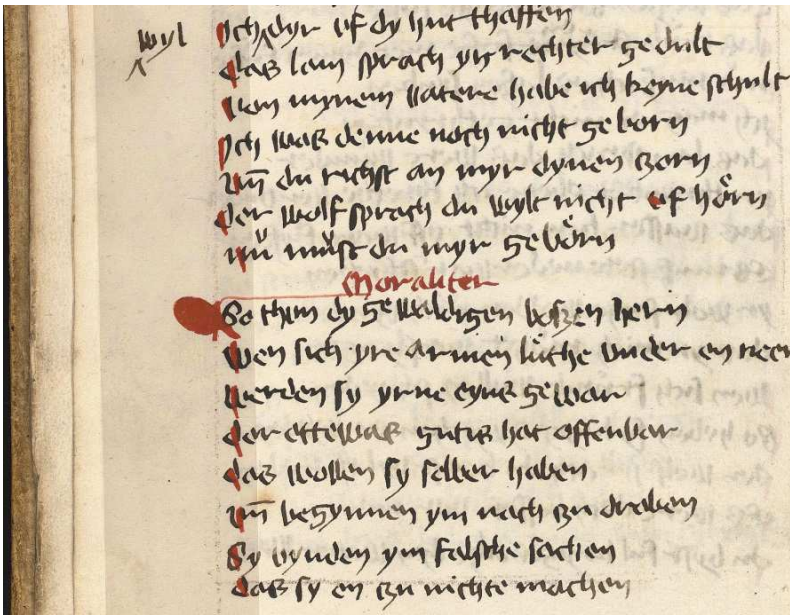 wyl
Ich dyr vf dy hut schaffen
das lam sprach yn rechter gedult
von mynem vatere habe ich keyne schult
Ich was denne noch nicht geborn
vn̄ du richst an myr dynen czorn
der wolf sprach du wylt nicht vf hörn
nu must du myr geborn
Moraliter
So thun dy gewaldigen boszen hern
wen sich yre armen luthe vnder en neer
werden sy yrne eyns gewar
der ettewas gutis hat offenbar
das wollen sy selber haben
vn̄ begynnen ym nach czu draben
Sy vynden ym falsche sachen
das sy en czu nichte machen